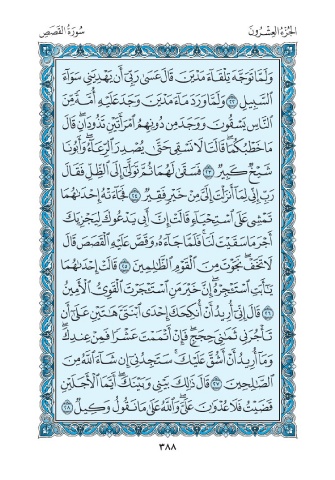 الجزء العشرون
سورة القصص
وَلَمَّا تَوَجَّهَ تِلْقَاءَ مَدْيَنَ قَالَ عَسَىٰ رَبِّي أَن يَهْدِيَنِي سَوَاءَ
السَّبِيلِ ٢٢ وَلَمَّا وَرَدَ مَاءَ مَدْيَنَ وَجَدَ عَلَيْهِ أُمَّةً مِّنَ
النَّاسِ يَسْقُونَ وَوَجَدَ مِن دُونِهِمُ امْرَأَتَيْنِ تَذُودَانِ ۖ قَالَ
مَا خَطْبُكُمَا ۖ قَالَتَا لَا نَسْقِي حَتَّىٰ يُصْدِرَ الرِّعَاءُ ۖ وَأَبُونَا
شَيْخٌ كَبِيرٌ ٢٣ فَسَقَىٰ لَهُمَا ثُمَّ تَوَلَّىٰ إِلَى الظِّلِّ فَقَالَ
رَبِّ إِنِّي لِمَا أَنزَلْتَ إِلَيَّ مِنْ خَيْرٍ فَقِيرٌ ٢٤ فَجَاءَتْهُ إِحْدَاهُمَا
تَمْشِي عَلَى اسْتِحْيَاءٍ قَالَتْ إِنَّ أَبِي يَدْعُوكَ لِيَجْزِيَكَ
أَجْرَ مَا سَقَيْتَ لَنَا ۚ فَلَمَّا جَاءَهُ وَقَصَّ عَلَيْهِ الْقَصَصَ قَالَ
لَا تَخَفْ ۖ نَجَوْتَ مِنَ الْقَوْمِ الظَّالِمِينَ ٢٥ قَالَتْ إِحْدَاهُمَا
يَا أَبَتِ اسْتَأْجِرْهُ ۖ إِنَّ خَيْرَ مَنِ اسْتَأْجَرْتَ الْقَوِيُّ الْأَمِينُ
٢٦ قَالَ إِنِّي أُرِيدُ أَنْ أُنكِحَكَ إِحْدَى ابْنَتَيَّ هَاتَيْنِ عَلَىٰ أَن
تَأْجُرَنِي ثَمَانِيَ حِجَجٍ ۖ فَإِنْ أَتْمَمْتَ عَشْرًا فَمِنْ عِندِكَ ۖ
وَمَا أُرِيدُ أَنْ أَشُقَّ عَلَيْكَ ۚ سَتَجِدُنِي إِن شَاءَ اللَّهُ مِنَ
الصَّالِحِينَ ٢٧ قَالَ ذَٰلِكَ بَيْنِي وَبَيْنَكَ ۖ أَيَّمَا الْأَجَلَيْنِ
قَضَيْتُ فَلَا عُدْوَانَ عَلَيَّ ۖ وَاللَّهُ عَلَىٰ مَا نَقُولُ وَكِيلٌ ٢٨
٣٨٨